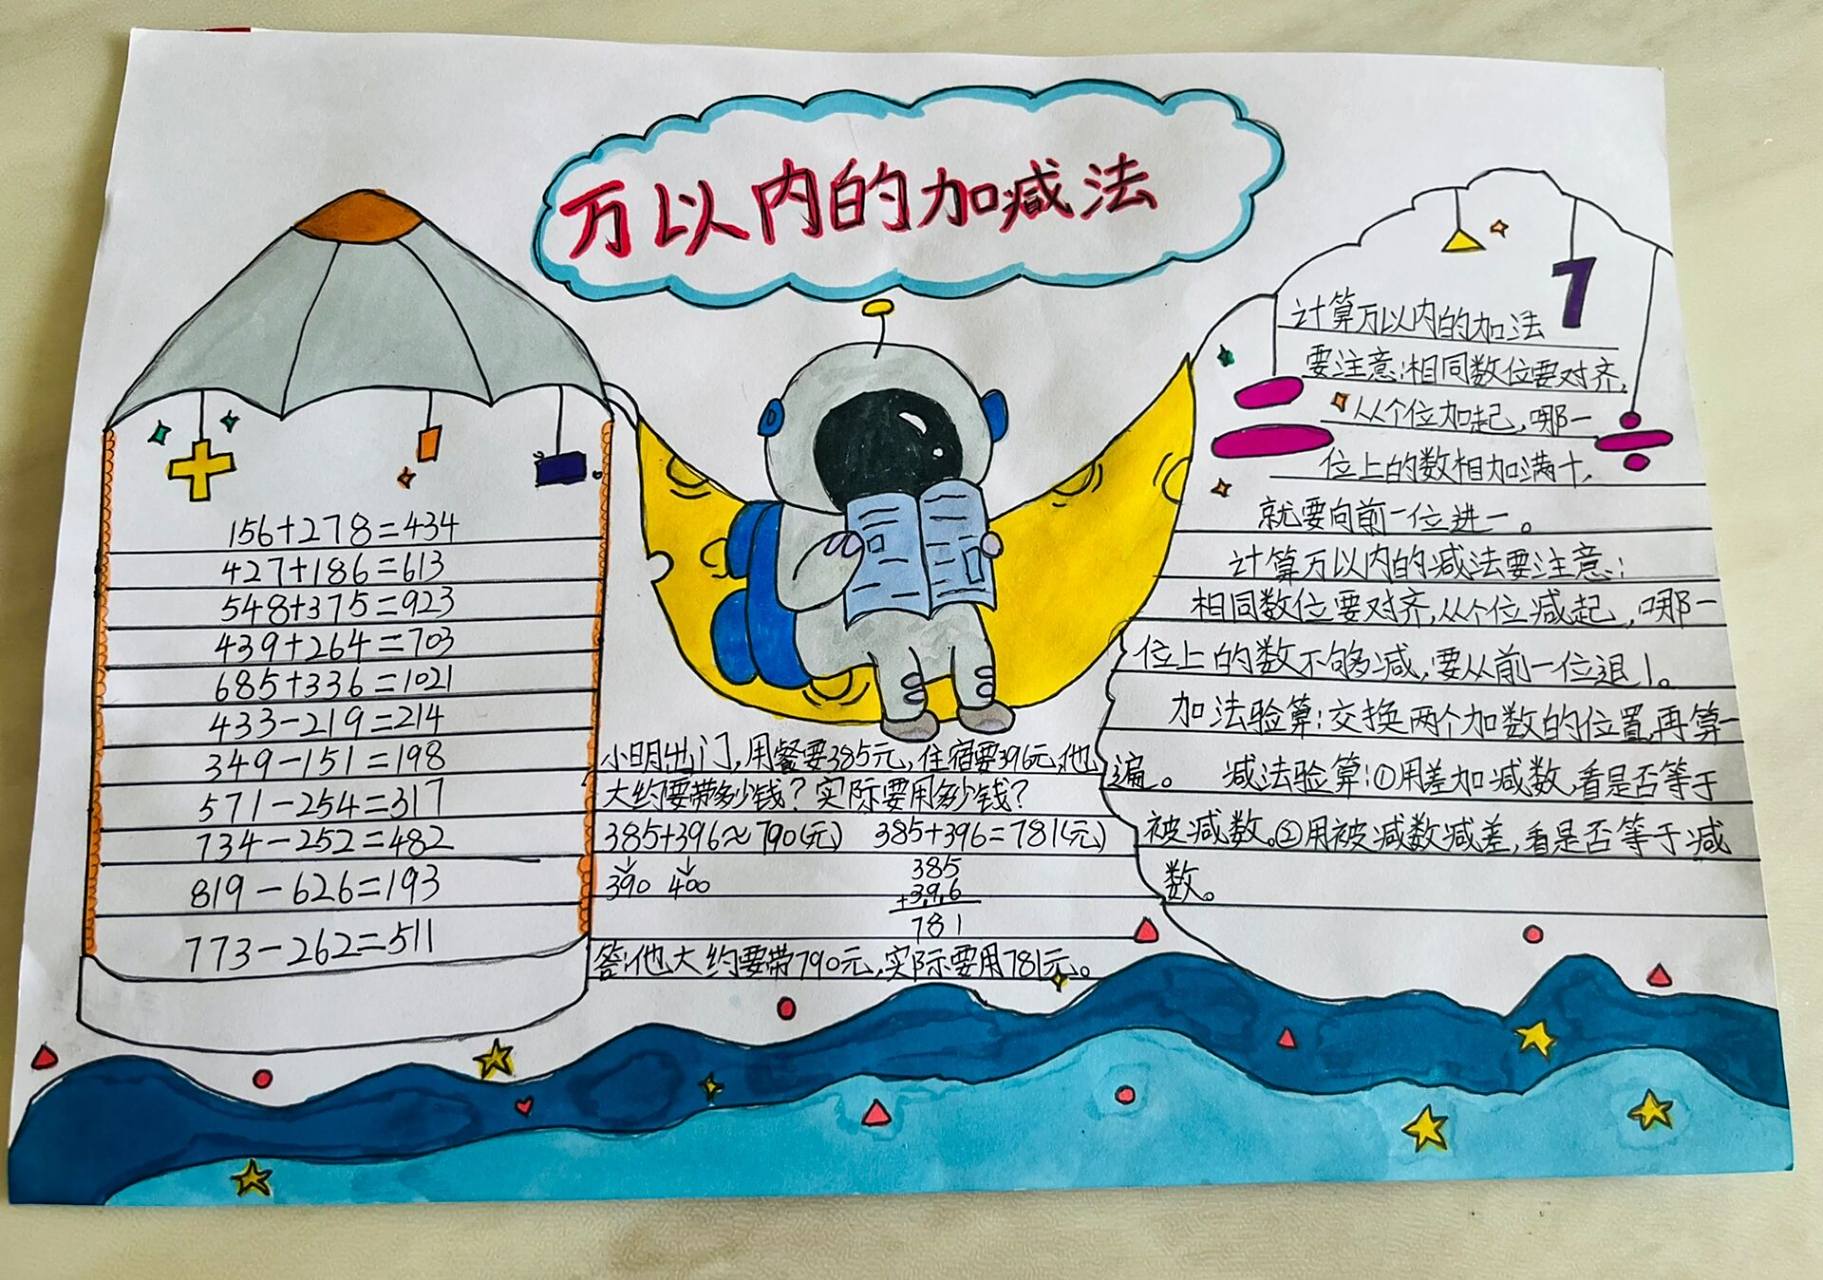 万以内的加减法
156+278=434
427+186=613
548+375=923
439+264=703
685+336=1021
433-219=214
349-151=198
571-254=317
734-252=482
819-626=193
773-262=511
小明出门,用餐要385元,住宿要396元,他
大约要带多少钱?实际要用多少钱?
385+396≈790(元) 385+396=781(元)
390 400
385
+396
781
答:他大约要带790元,实际要用781元。
7
计算万以内的加法
要注意:相同数位要对齐,
从个位加起,哪一
位上的数相加满十,
就要向前一位进一。
计算万以内的减法要注意:
相同数位要对齐,从个位减起,哪一
位上的数不够减,要从前一位退1。
加法验算:交换两个加数的位置,再算一
遍。 减法验算:①用差加减数,看是否等于
被减数。②用被减数减差,看是否等于减
数。